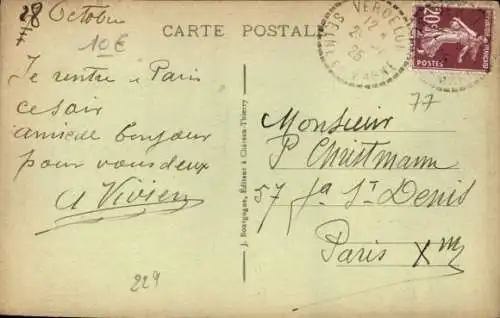 28 Octobre
10€
Je rentre à Paris
ce soir
amicale bonjour
pour vous deux
A Vivien
229
CARTE POSTALE
J. Bourgogne, Éditeur à Château-Thierry
VERDELOT
SEINE
MARNE
12
25
20c
POSTES
77
Monsieur
P Christmann
57 fg St Denis
Paris Xm